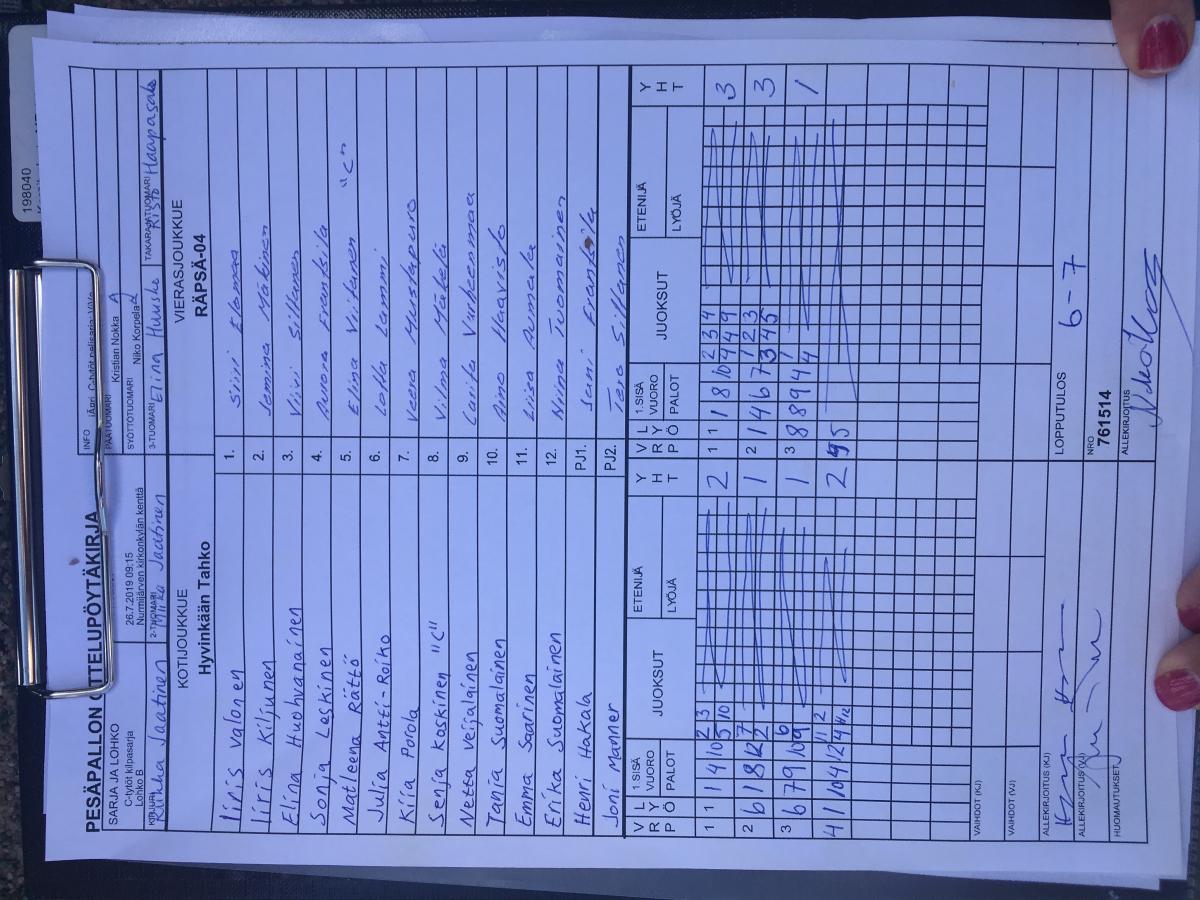 198040
PESÄPALLON OTTELUPÖYTÄKIRJA
SARJA JA LOHKO
C-tytöt kilpasarja
Lohko B
26.7.2019 09:15
Nurmijärven kirkonkylän kenttä
INFO
PÄÄTUOMARI
Kristian Nokka
SYÖTTÖTUOMARI
Niko Korpela
KIRJURI
Riikka Jaatinen
2-TUOMARI
Miika Jaatinen
3-TUOMARI
Elina Huuska
TAKARAJATUOMARI
Risto Haapasalo
KOTIJOUKKUE
Hyvinkään Tahko
VIERASJOUKKUE
RÄPSÄ-04
Iiris Valonen 1. Siiri Elomaa
Iiris Kiljunen 2. Jemina Mäkinen
Elina Huohvanainen 3. Viivi Sillanen
Sonja Leskinen 4. Aurora Fransila
Matleena Rättö 5. Elina Viitanen "C"
Julia Antti-Roiko 6. Lotta Lammi
Kiia Porola 7. Veera Mustapuro
Senja Koskinen "C" 8. Vilma Mäkelä
Netta Veijalainen 9. Carita Virkeenmaa
Tania Suomalainen 10. Aino Haavisto
Emma Saarinen 11. Liisa Aumala
Erika Suomalainen 12. Niina Tuomainen
Henri Hakala PJ1. Sani
Joni Manner PJ2. Tero Sillanen
V R P L Y Ö 1.SISÄ VUORO PALOT JUOKSUT ETENIJÄ LYÖJÄ Y H T
V R P L Y Ö 1.SISÄ VUORO PALOT JUOKSUT ETENIJÄ LYÖJÄ Y H T
1 1 1 4 10 2 3 5 10 2
1 1 1 8 10 2 3 4 4 4 9 3
2 6 1 8 12 7 2 1
2 1 4 6 7 1 2 3 3 4 5 3
3 6 7 9 10 6 9 1
3 8 8 9 4 1 4 1
4 1 10 4 12 11 2 4 12 2
4 5
VAIHDOT (KJ)
VAIHDOT (VJ)
ALLEKIRJOITUS (KJ)
LOPPUTULOS
6-7
ALLEKIRJOITUS (VJ)
NRO
761514
HUOMAUTUKSET
ALLEKIRJOITUS